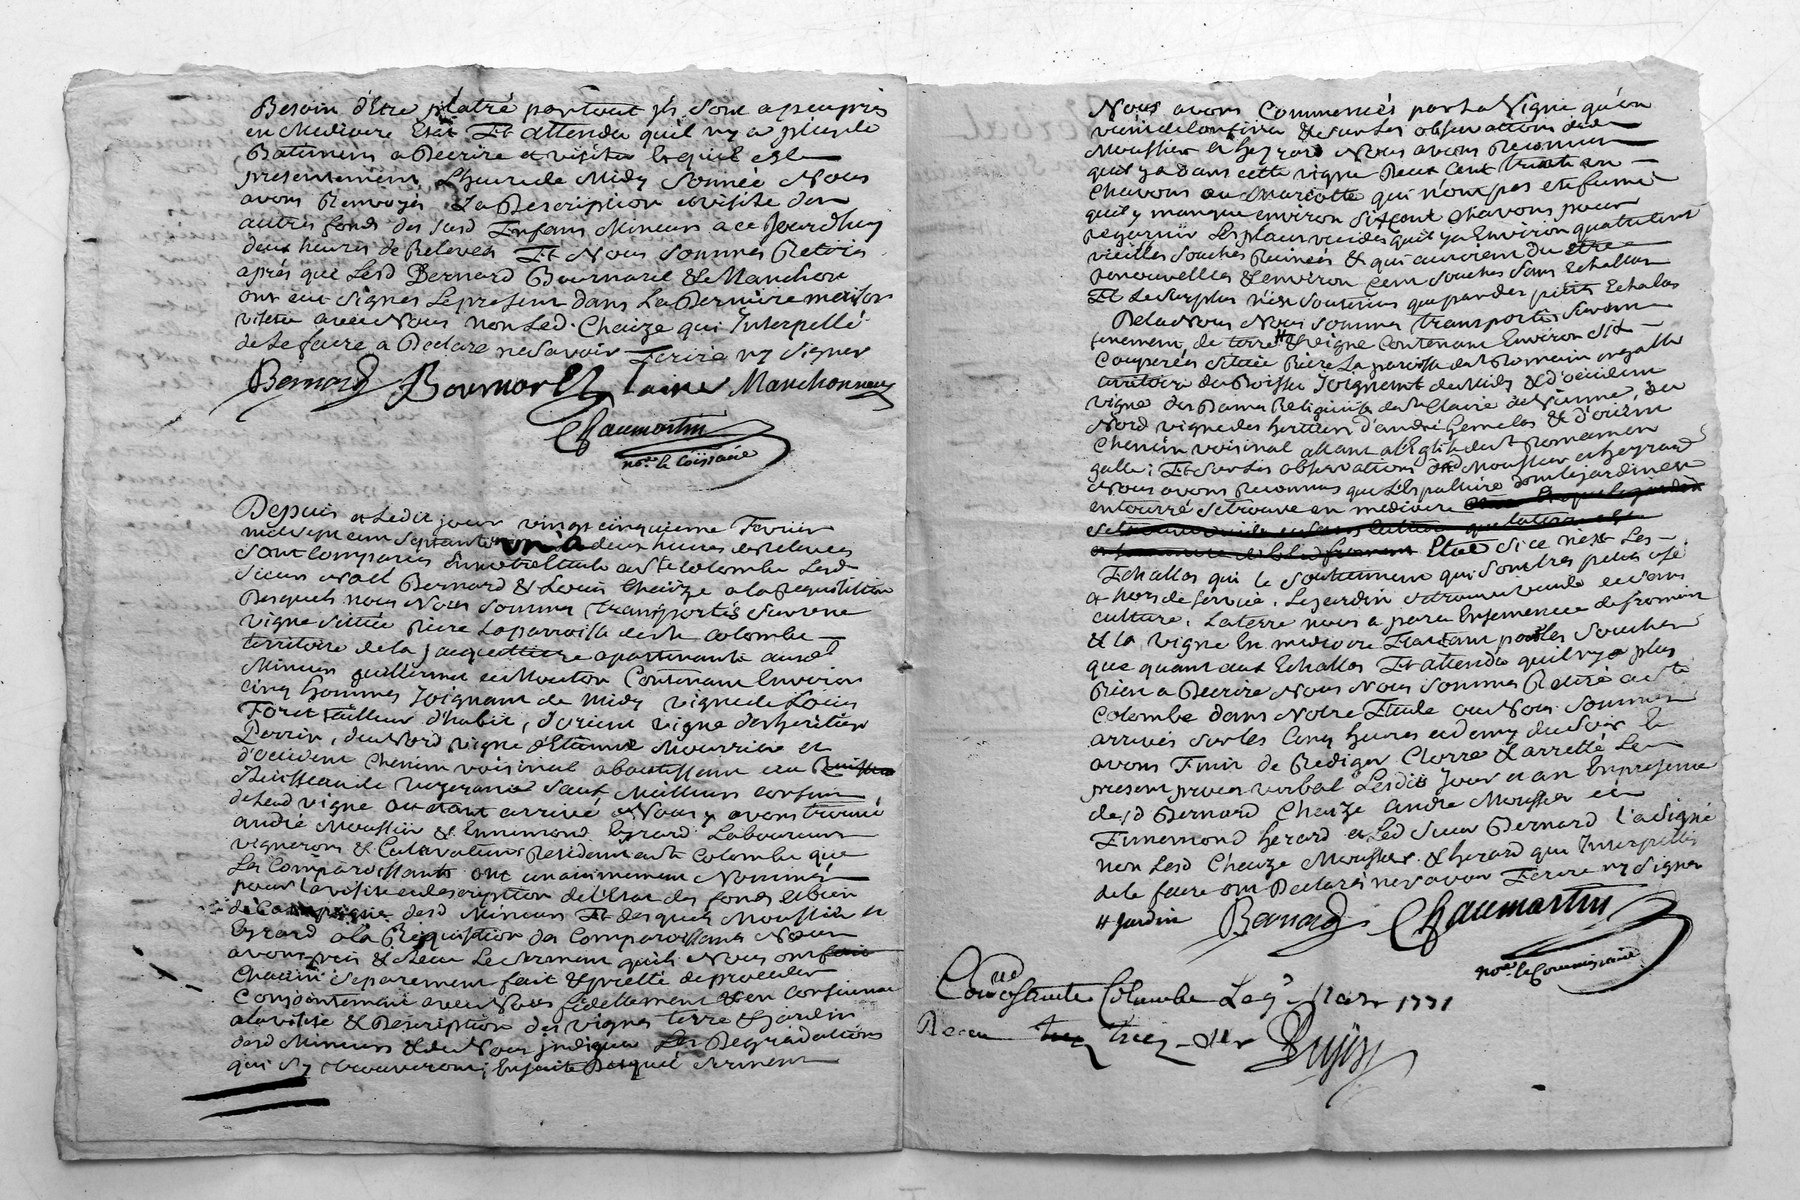 Besoin d'Etre platré partout jls sont apeuprés
en Mediocre Etat Et attendu quil ny a plus de
Batimens a Decrire et visiter & quil est
presentement L'heure de Midy sonnée Nous
avons Renvoyés La Description & visite des
autres fonds desd Enfans Mineurs a ce Jourdhuy
deux heures de Relevée Et Nous sommes Retirés
aprés que Lesd Bernard Bournarel & Le Manchon
ont eut signés Lepresent dans La Derniere maison
visitée avec Nous non Led. Chaize qui Interpellé
de Le faire a Declaré ne savoir Ecrire ny signer
Bernard Bournarel Manchon
Chaumartin
nore. le Coissaire
Depuis et Ledit jour vingt cinquieme Fevrier
mil sept cent septante un a deux heures de relevée
sont Comparus en notre Etude aude Ste Colombe Lesd
sieurs Bernard & Louis Chaize a la requisition
Desquels nous Nous sommes transportés sur une
vigne située Riere La parroisse de Ste Colombe
territoire de la apartenante ausd
Mineurs Guillermet en Mouton Contenant Environ
cinq hommes Joignant de midy vigne de Louis
Foret tailleur d'habit, d'orient vigne des heritiers
Perrin, du Nord vigne d'Etienne Mourrier et
d'occident Chemin voisinal aboutissant au
Ruisseau de Vezerance sauf Meilleurs confins
de Lad vigne ou étant arrivé Nous y avons trouvé
andré Moussier & Ennemond heyrard Laboureurs
vignerons & Cultivateurs Residents aude Ste Colombe que
Les Comparoissants ont unanimement Nommés
pour La visite & description de l'Etat des fonds & bien
de Campagne desd Mineurs Et desquels Moussier et
heyrard a la Requisition des Comparoissants Nous
avons pris & Reçu Le serment quils Nous ont fait
Chacun separement fait & pretté de proceder
Conjointement avec Nous fidellement & en Conscience
a la visite & Description des vignes terre & jardin
desd Mineurs & de Nous jndiquer Les Degradations
qui s'y trouveront; Ensuite Duquel serment
Nous avons Commencés par La Vigne qu'on
vient de Confiner & sur Les observations desd
Moussier et heyrard Nous avons Reconnu
quil y a dans cette vigne Deux Cent trente un
Chavons ou Mariotte qui n'ont pas eté fumé
quil y manque environ six Cent Chavons pour
regarnir Les places vuides quil y a Environ quatre Cent
vieilles souches Ruinées & qui auroient du être
renouvellées & environ Cent souches sans Echallas
Et Le surplus n'est soutenus que par des petits Echalas
De la Nous Nous sommes transportés sur un
tenement de terre # & vigne Contenant Environ six
Couperées située Riere La paroisse de St Romain en galle
territoire du Boissu Joignant du Midy & d'occident
vigne des Dames Religieuses de Ste Claire de Vienne, du
Nord vigne des heritiers d'andré Gemelas & d'orient
Chemin voisinal allant a l'Eglise de St Romain en
galle; Et sur Les observations desd Moussier et heyrard
Nous avons Reconnus que L'Espalliere dont le jardin est
entourré se trouve en mediocre
Etat si ce n'est Les
Echallas qui le soutiennent qui sont tres petits usé
et hors de service. Le jardin se trouve vuide et sans
culture, La terre nous a paru Ensemencée de froment
& la vigne En mediocre Etat tant pour les souches
que quant aux Echallas Et attendu quil ny a plus
Rien a Decrire Nous Nous sommes Retiré aude Ste
Colombe dans Notre Etude ou Nous sommes
arrivés sur les Cinq heures & demy du soir &
avons Finir de Rediger Clorre & arretté Le
present procés verbal Lesdis Jour et an En presence
desd Bernard Chaize andré Moussier et
Ennemond herard et Led sieur Bernard l'a signé
non Lesd Chaize Moussier & herard qui Interpellés
de le faire ont Declarés ne savoir Ecrire ny signer
# Jardin Bernard Chaumartin
nore. le Commissaire
Colombe Le 9 Mars 1771
Receu treize